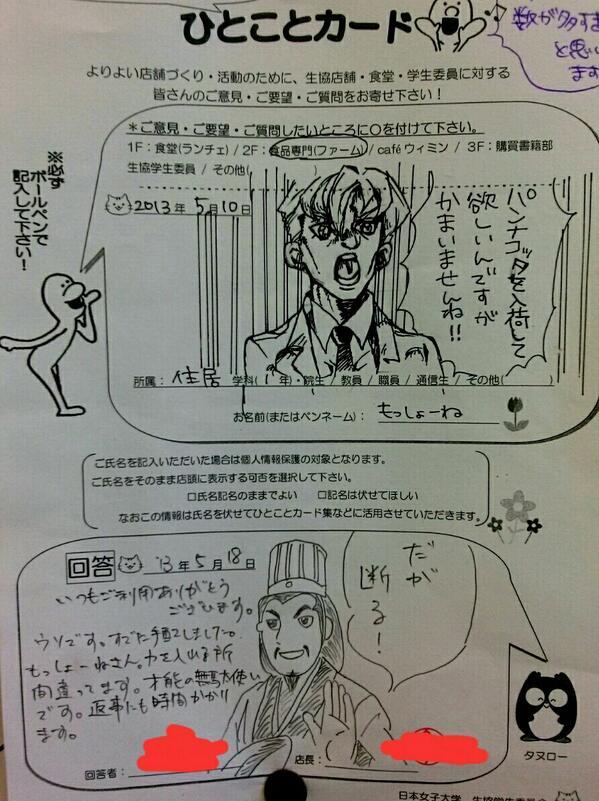 ひとことカード
数が多すぎ
と思い
ます
よりよい店舗づくり・活動のために、生協店舗・食堂・学生委員に対する
皆さんのご意見・ご要望・ご質問をお寄せ下さい！
※必ず
ボールペンで
記入して下さい！
＊ご意見・ご要望・ご質問したいところに○を付けて下さい。
1F：食堂(ランチェ) / 2F：食品専門(ファーム) / caféウィミン / 3F：購買書籍部
生協学生委員 / その他( )
2013年 5月10日
パンナコッタを入荷して
欲しいんですが
かまいませんね!!
所属： 住居 学科( 年)・院生 / 教員 / 職員 / 通信生 / その他( )
お名前(またはペンネーム)： もっしょーね
ご氏名を記入いただいた場合は個人情報保護の対象となります。
ご氏名をそのまま店頭に表示する可否を選択して下さい。
□氏名記名のままでよい □記名は伏せてほしい
なおこの情報は氏名を伏せてひとことカード集などに活用させていただきます。
回答 '13年5月18日
だが
断る！
いつもご利用ありがとう
ございます。
ウソです。すでに手配しました。
もっしょーねさん。力を入れる所
間違ってます。才能の無駄使い
です。返事にも時間かかり
ます。
回答者：
店長：
タヌロー
日本女子大学 生協学生委員会